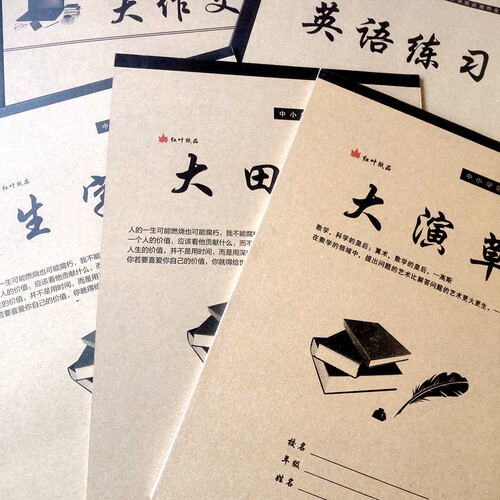 大作文
英语练习
中小
红叶纸品
生字
红叶纸品
大田
人的一生可能燃烧也可能腐朽，我不能腐朽
一个人的价值，应该看他贡献什么，而不
人生的价值，并不是用时间，而是用深
你若要喜爱你自己的价值，你就得给世
中小学
红叶纸品
大演草
数学，科学的皇后；算术，数学的皇后。—高斯
在数学的领域中，提出问题的艺术比解答问题的艺术更火更生。—
可能燃烧也可能腐朽，我不能
的价值，应该看他贡献什么，
价值，并不是用时间，而是用
若要喜爱你自己的价值，你就得
校名
年级
姓名